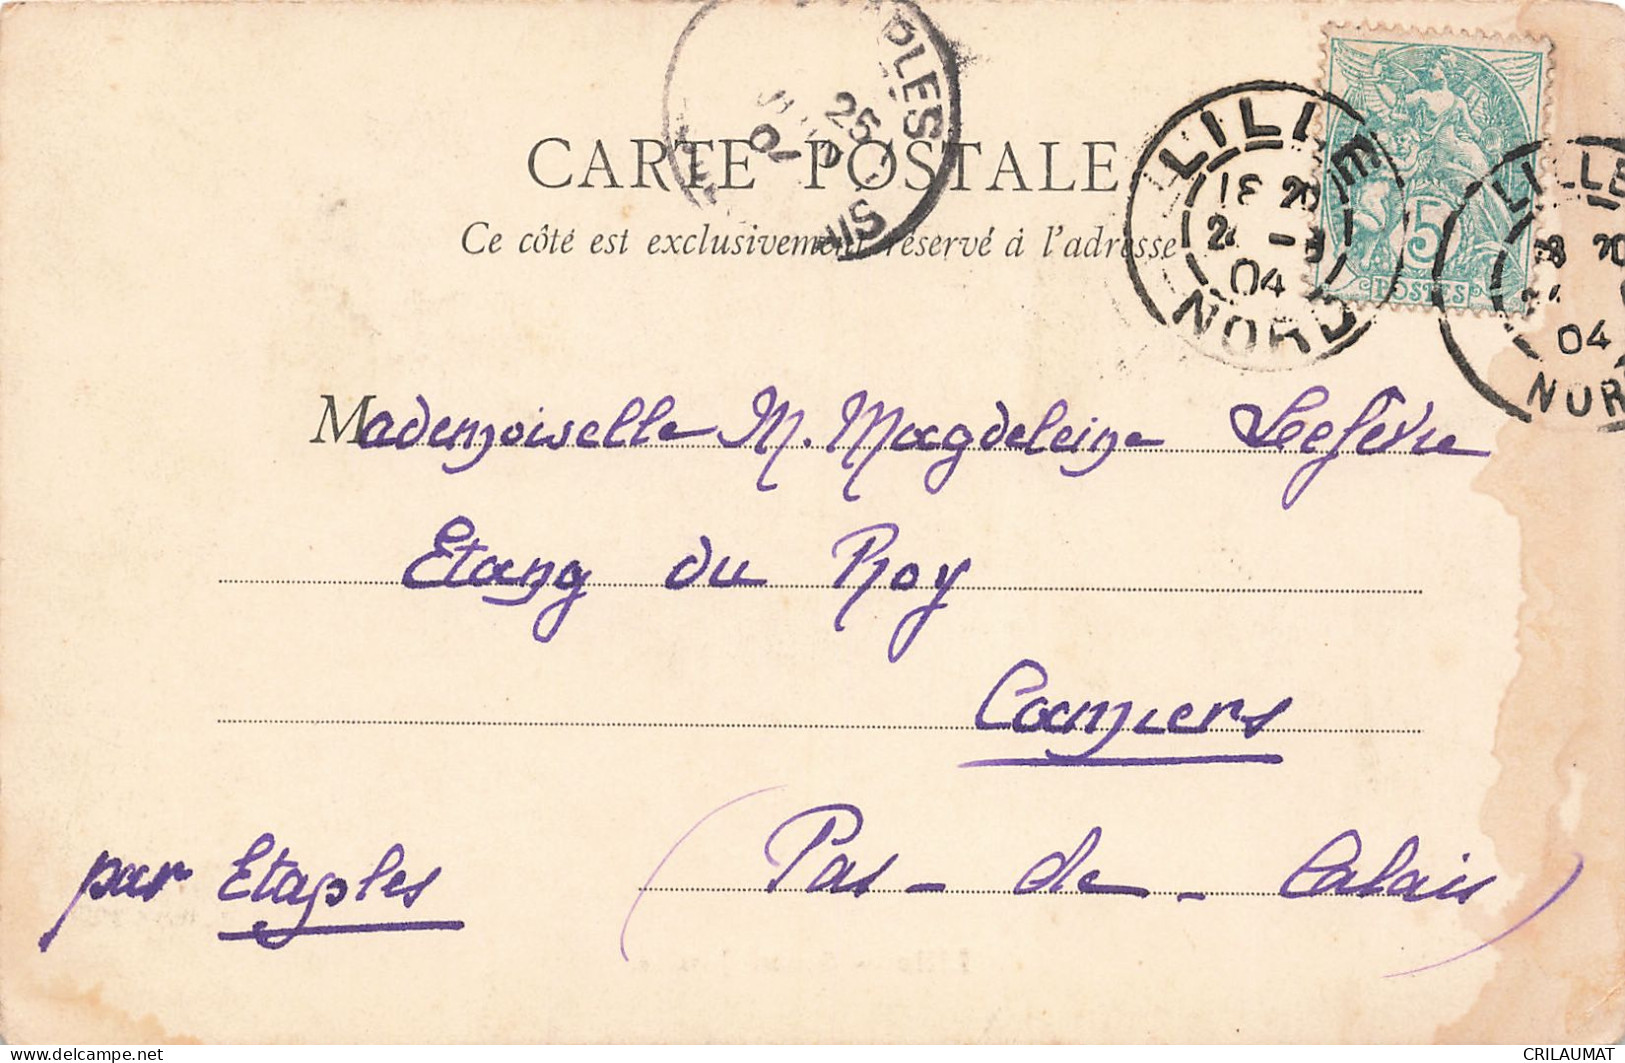 CARTE POSTALE
Ce côté est exclusivement réservé à l'adresse
LILLE
18 20
04
NORD
LILLE
20
04
NOR
5
POSTES
25
Mademoiselle M. Magdeleine Lefèvre
Etang du Roy
Camiers
par Etaples (Pas-de-Calais)
delcampe.net
CRILAUMAT